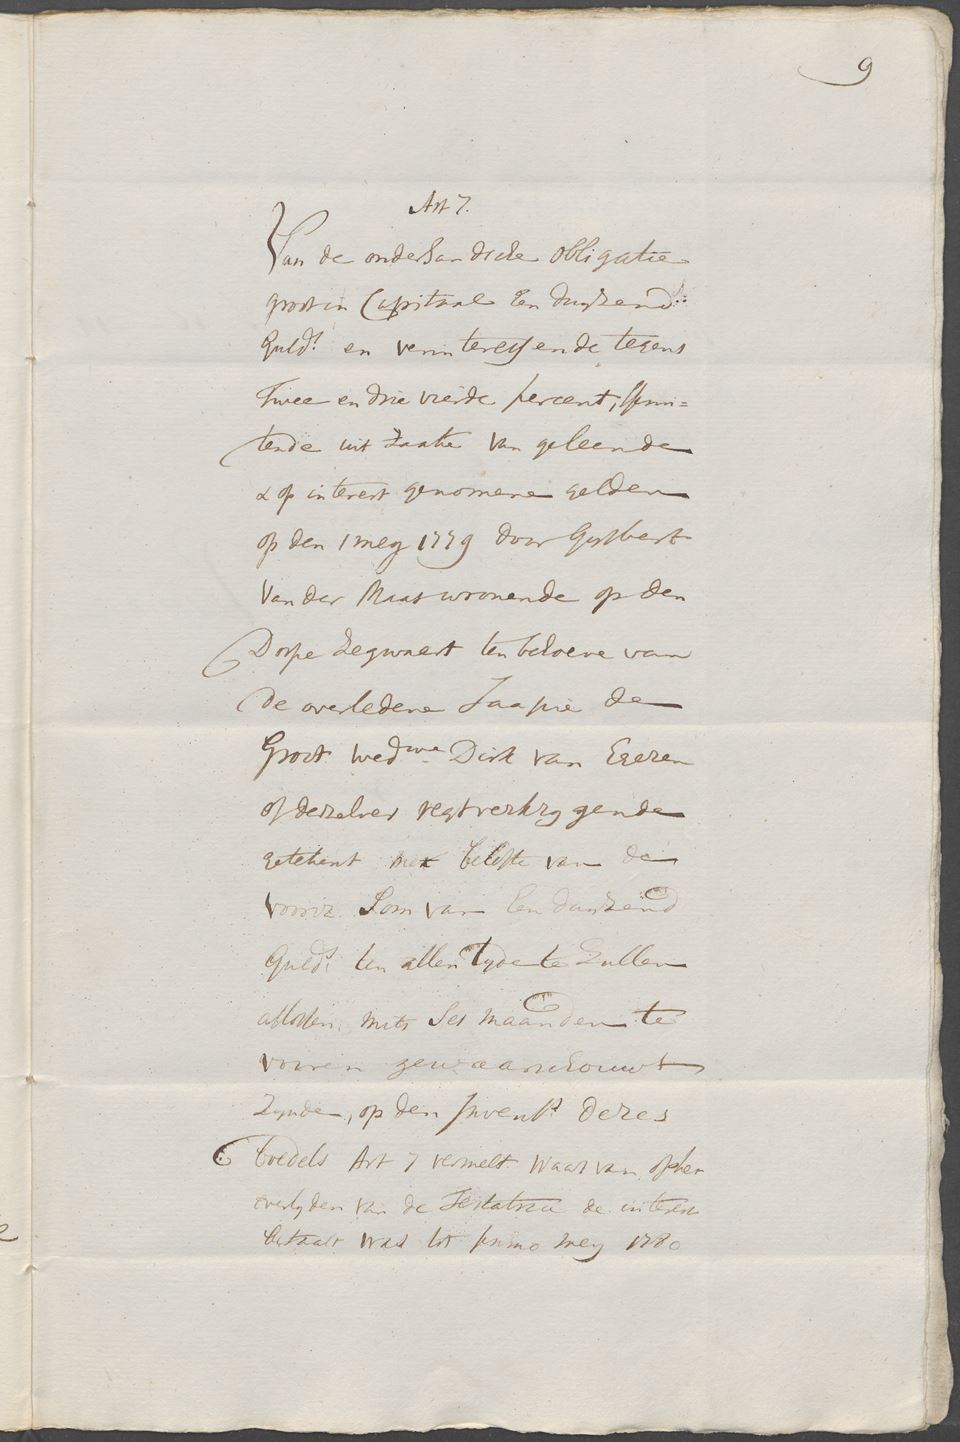 9
Art 7.
Van de onderhandsche obligatie
groot in Capitaal Een duyzend
Guld.s en verinteressende tegens
Twee en drie vierde percent, sprui=
tende uit zaake van geleende
& op interest genomene gelden
op den 1 mey 1779 door Gysbert
Van der Maas woonende op den
Dorpe Zegwaert ten behoeve van
de overledene Jaapie de
Groot wed.we Dirk van Egeren
of derzelver regtverkrygende
getekent met belofte van de
voorsz. Som van Een duyzend
Guld.s ten allen tyde te zullen
aflossen, mits Ses maanden te
vooren gewaarschouwt
Zynde, op den Invent.s dezes
boedels Art 7 vermelt. Waar van op het
overlyden van de Testatrice de interest
betaalt was tot primo mey 1780